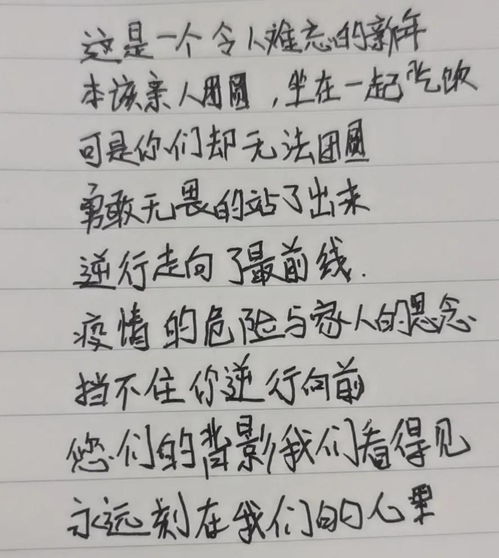 这是一个令人难忘的新年
本该亲人团圆，坐在一起吃饭
可是你们却无法团圆
勇敢无畏的站了出来
逆行走向了最前线.
疫情的危险与家人的思念
挡不住你逆行向前
您们的背影我们看得见
永远刻在我们的心里